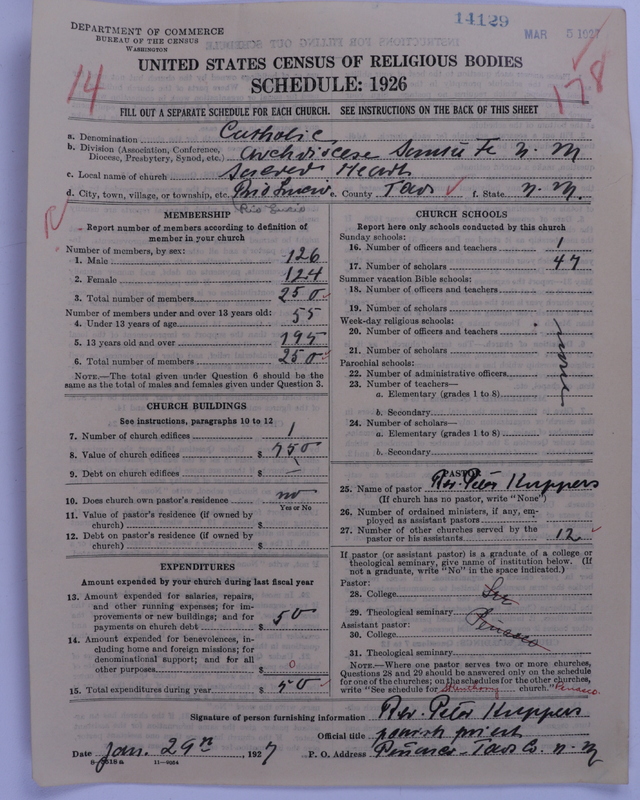 14129
DEPARTMENT OF COMMERCE
BUREAU OF THE CENSUS
WASHINGTON
MAR 5 1927
UNITED STATES CENSUS OF RELIGIOUS BODIES
SCHEDULE: 1926
14
178
FILL OUT A SEPARATE SCHEDULE FOR EACH CHURCH. SEE INSTRUCTIONS ON THE BACK OF THIS SHEET
a. Denomination Catholic
b. Division (Association, Conference, Diocese, Presbytery, Synod, etc.) Archdiocese Santa Fe N. M
c. Local name of church Sacred Heart
d. City, town, village, or township, etc. Rio Lucio e. County Taos f. State N. M.
Rio Lucio
MEMBERSHIP
Report number of members according to definition of
member in your church
Number of members, by sex:
1. Male 126
2. Female 124
3. Total number of members 250
Number of members under and over 13 years old:
4. Under 13 years of age 55
5. 13 years old and over 195
6. Total number of members 250
NOTE.—The total given under Question 6 should be the
same as the total of males and females given under Question 3.
CHURCH BUILDINGS
See instructions, paragraphs 10 to 12
7. Number of church edifices 1
8. Value of church edifices $ 750
9. Debt on church edifices $ —
10. Does church own pastor's residence no
Yes or No
11. Value of pastor's residence (if owned by
church) $
12. Debt on pastor's residence (if owned by
church) $
EXPENDITURES
Amount expended by your church during last fiscal year
13. Amount expended for salaries, repairs,
and other running expenses; for im-
provements or new buildings; and for
payments on church debt $ 50
14. Amount expended for benevolences, in-
cluding home and foreign missions; for
denominational support; and for all
other purposes $ 0
15. Total expenditures during year $ 50
CHURCH SCHOOLS
Report here only schools conducted by this church
Sunday schools:
16. Number of officers and teachers 1
17. Number of scholars 47
Summer vacation Bible schools:
18. Number of officers and teachers
19. Number of scholars
Week-day religious schools:
20. Number of officers and teachers
21. Number of scholars
none
Parochial schools:
22. Number of administrative officers
23. Number of teachers—
a. Elementary (grades 1 to 8)
b. Secondary
24. Number of scholars—
a. Elementary (grades 1 to 8)
b. Secondary
PASTOR
25. Name of pastor Rev. Peter Kuppers
(If church has no pastor, write "None")
26. Number of ordained ministers, if any, em-
ployed as assistant pastors
27. Number of other churches served by the
pastor or his assistants 12
If pastor (or assistant pastor) is a graduate of a college or
theological seminary, give name of institution below. (If
not a graduate, write "No" in the space indicated.)
Pastor:
28. College See
29. Theological seminary Peñasco
Assistant pastor:
30. College
31. Theological seminary
NOTE.—Where one pastor serves two or more churches,
Questions 28 and 29 should be answered only on the schedule
for one of the churches; on the schedules for the other churches,
write "See schedule for church." Penasco
Signature of person furnishing information Rev. Peter Kuppers
Official title parish priest
Date Jan. 29th 1927 P. O. Address Peñasco – Taos Co. N. M
8—5518 a 11—9264